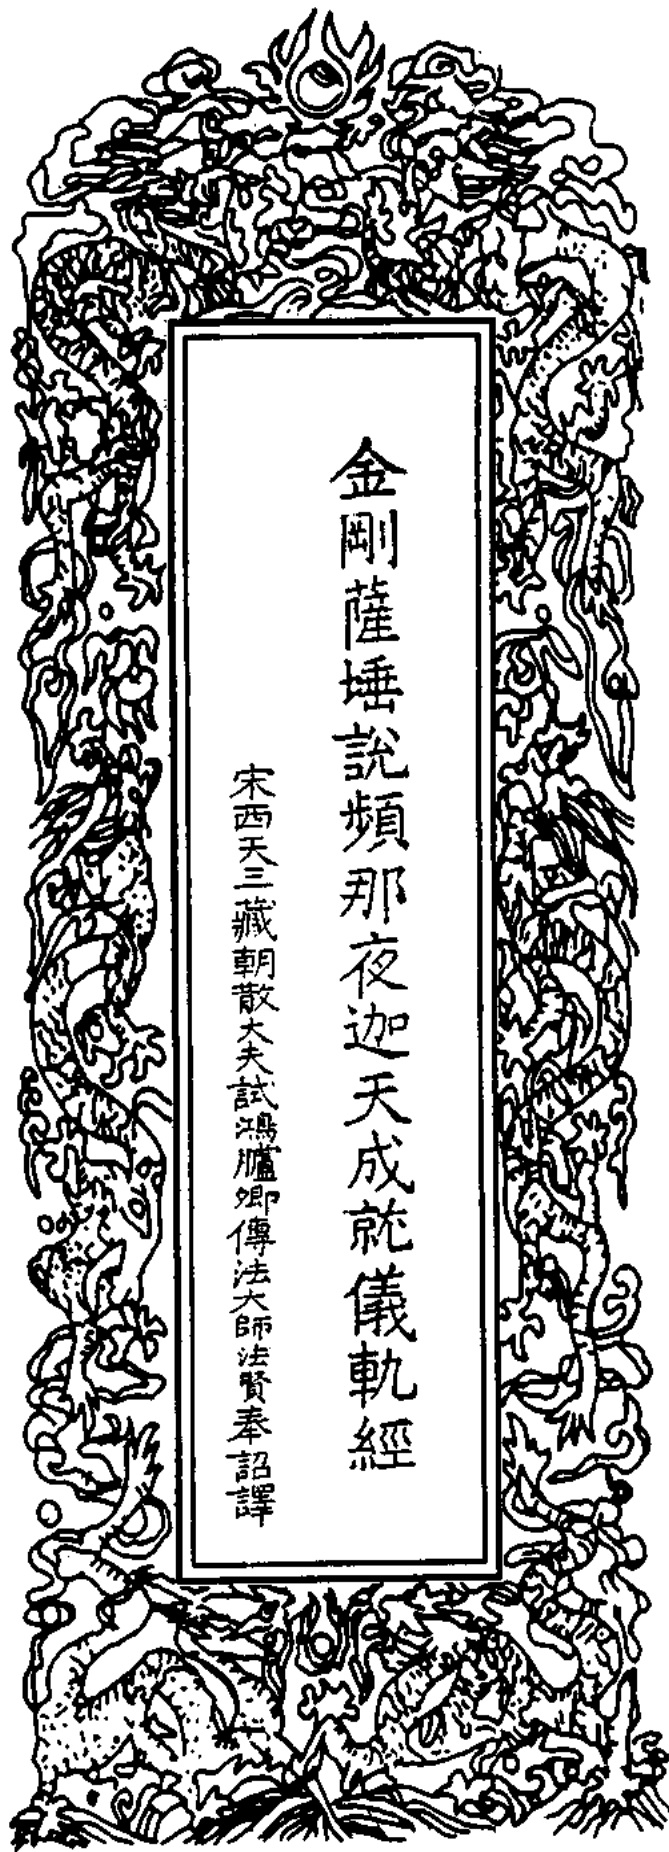 金剛薩埵說頻那夜迦天成就儀軌經
宋西天三藏朝散大夫試鴻臚卿傳法大師法賢奉詔譯